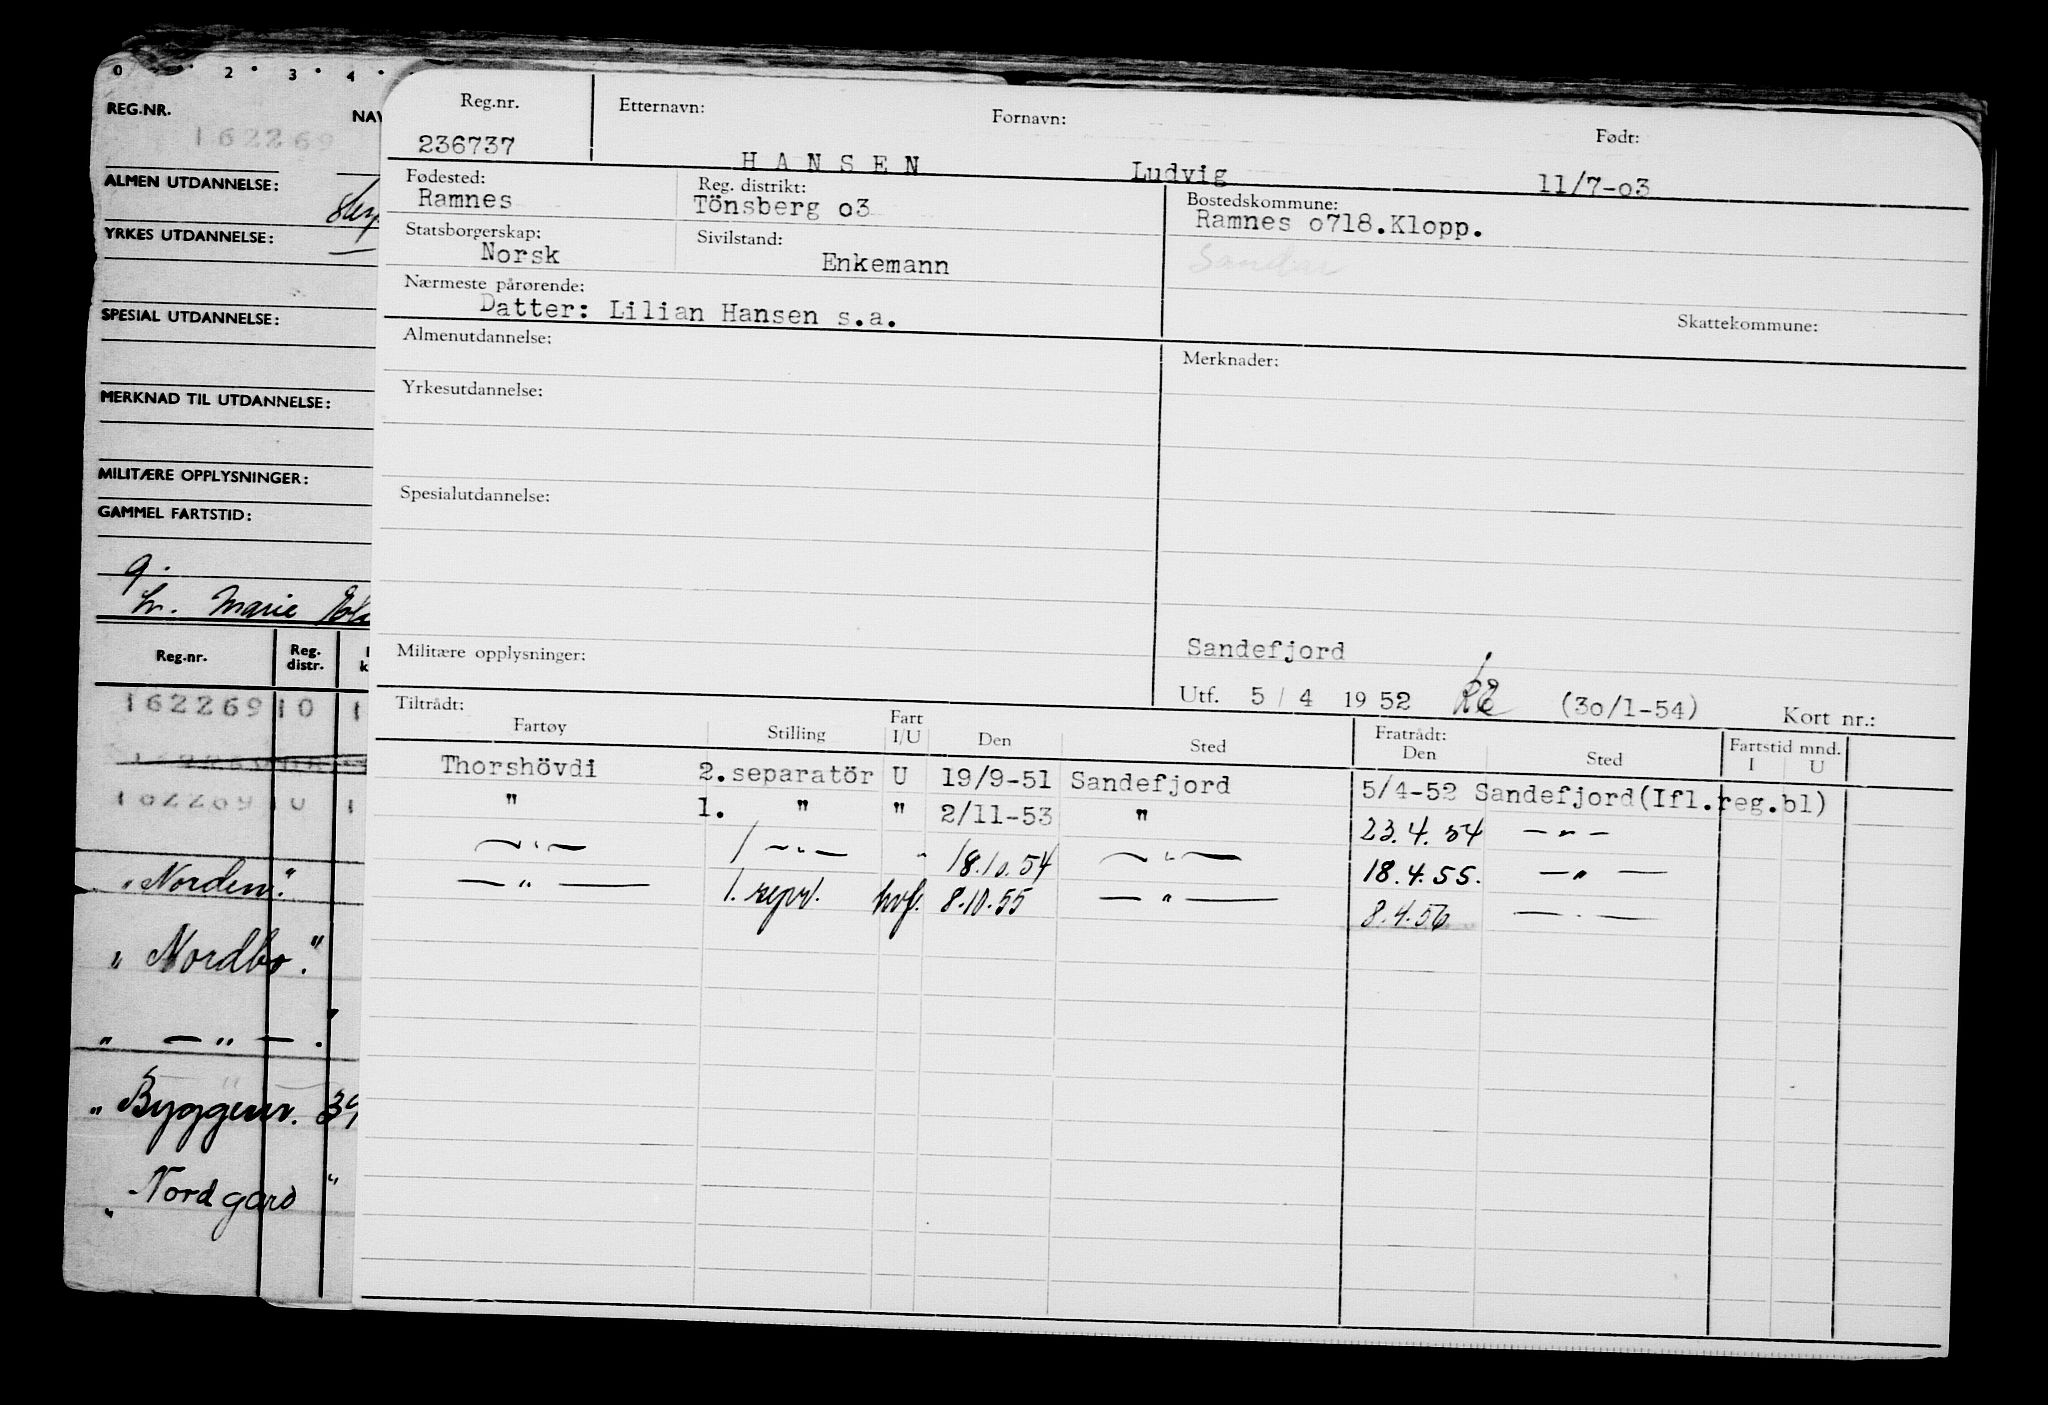 0 · 2 · 3 · 4 ·
REG.NR.
NAV
162269
ALMEN UTDANNELSE:
YRKES UTDANNELSE:
SPESIAL UTDANNELSE:
MERKNAD TIL UTDANNELSE:
MILITÆRE OPPLYSNINGER:
GAMMEL FARTSTID:
g.
Marie
Reg.nr. Reg. distr. k
162269 10 1
162269 10 1
"Norden."
"Nordbo."
" — " — .
"Byggenr. 39
"Nordgard"
Reg.nr. Etternavn: Fornavn: Født:
236737 HANSEN Ludvig 11/7-o3
Fødested: Reg. distrikt: Bostedskommune:
Ramnes Tönsberg o3 Ramnes o718.Klopp.
Statsborgerskap: Sivilstand:
Norsk Enkemann Sandar
Nærmeste pårørende:
Datter: Lilian Hansen s.a.
Skattekommune:
Almenutdannelse: Merknader:
Yrkesutdannelse:
Spesialutdannelse:
Militære opplysninger: Sandefjord
Utf. 5 / 4 19 52 (30/1-54) Kort nr.:
Tiltrådt: Fratrådt:
Fartøy Stilling Fart I/U Den Sted Den Sted Fartstid mnd. I U
Thorshövdi 2.separatör U 19/9-51 Sandefjord 5/4-52 Sandefjord(Ifl.reg.bl)
" 1. " " 2/11-53 " 23.4.54 — " —
— " — 1 — " — " 18.10.54 — " — 18.4.55. — " —
— " — 1. sepr. hvf. 8.10.55 — " — 8.4.56 — " —